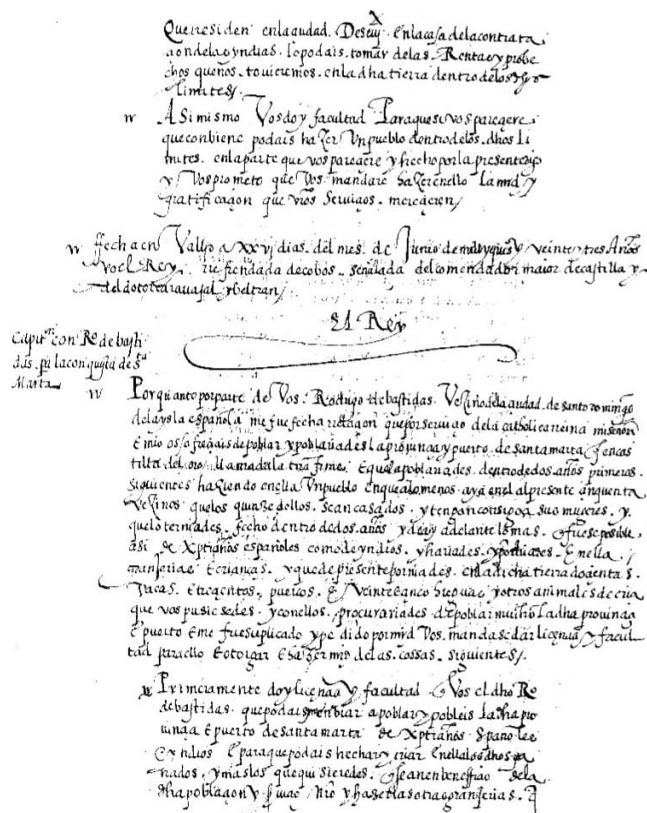 X
Que residen en la ciudad. De seuyª. en la casa de la contrata
cion de las yndias. lo podais. tomar de las. Rentas y probe
chos que nos. touieremos. en la dha tierra dentro de los dhos
limites/.
Asi mismo Vos doy facultad Para que si vos pareçiere
que conbiene podais hazer Un pueblo dentro de los. dhos li
mites. en la parte que vos pareçiere y hecho por la presente digo
y Vos prometo que Vos mandare hazer en ello la md y
gratificaçion que vros Seruiçios. mereçieren/
ffecha en Vallid a XXVj dias. del mes. de Junio de mill y quis y veinte y tres Años
yo el Rey. refrendada de cobos. señalada del comendador maior de castilla y
del dotor carauajal y beltran/
El Rey
Capitⁿ con Rº de basti
das. pª la conquista de Sta
Marta
Por quanto por parte de Vos. Rodrigo de bastidas. Vezino de la ciudad. de santo domingo
de la ysla española me fue fecha relaçion que por seruiçio de la catholica reina mi señora
E mio os ofreçiais de poblar y poblariades la prouinçia y puerto de santa marta q es en cas
tilla del oro llamada la tra firme. E que la poblariades. dentro de dos. años primeros.
siguientes haziendo en ella Un pueblo en que alo menos. aya en el al presente çinquenta
vezinos que los quinze dellos. sean casados. y tengan consigo a sus mugeres. y
que lo terniades. fecho dentro de dos. años y de ay adelante lo mas. q fuese posible,
asi de Xptianos españoles como de yndios. y hariades. y porniades. en ella
granjerias E crianças. y que de presente porniades. en la dicha tierra dozientas.
vacas. E trezientos. puercos. E veinte çinco yeguas y otros animales de cria
que vos pusiesedes. y con ellos. procurariades de poblar mucho la dha prouinçia
E puerto E me fue suplicado y pedido por md Vos. mandase dar liçençia y facul
tad para ello E otorgar E hazer md de las. cossas. siguientes/.
Primeramente doy liçençia y facultad a Vos el dho Rº
de bastidas. que podais enbiar a poblar y pobleis la dha pro
uinçia E puerto de santa marta de Xptianos Españoles
E yndios E para que podais hechar y criar en ella los dhos ga
nados. y mas los que quisieredes. q sean en benefiçio de la
dha poblaçion y seruiçio nro y has de las otras granjerias. q